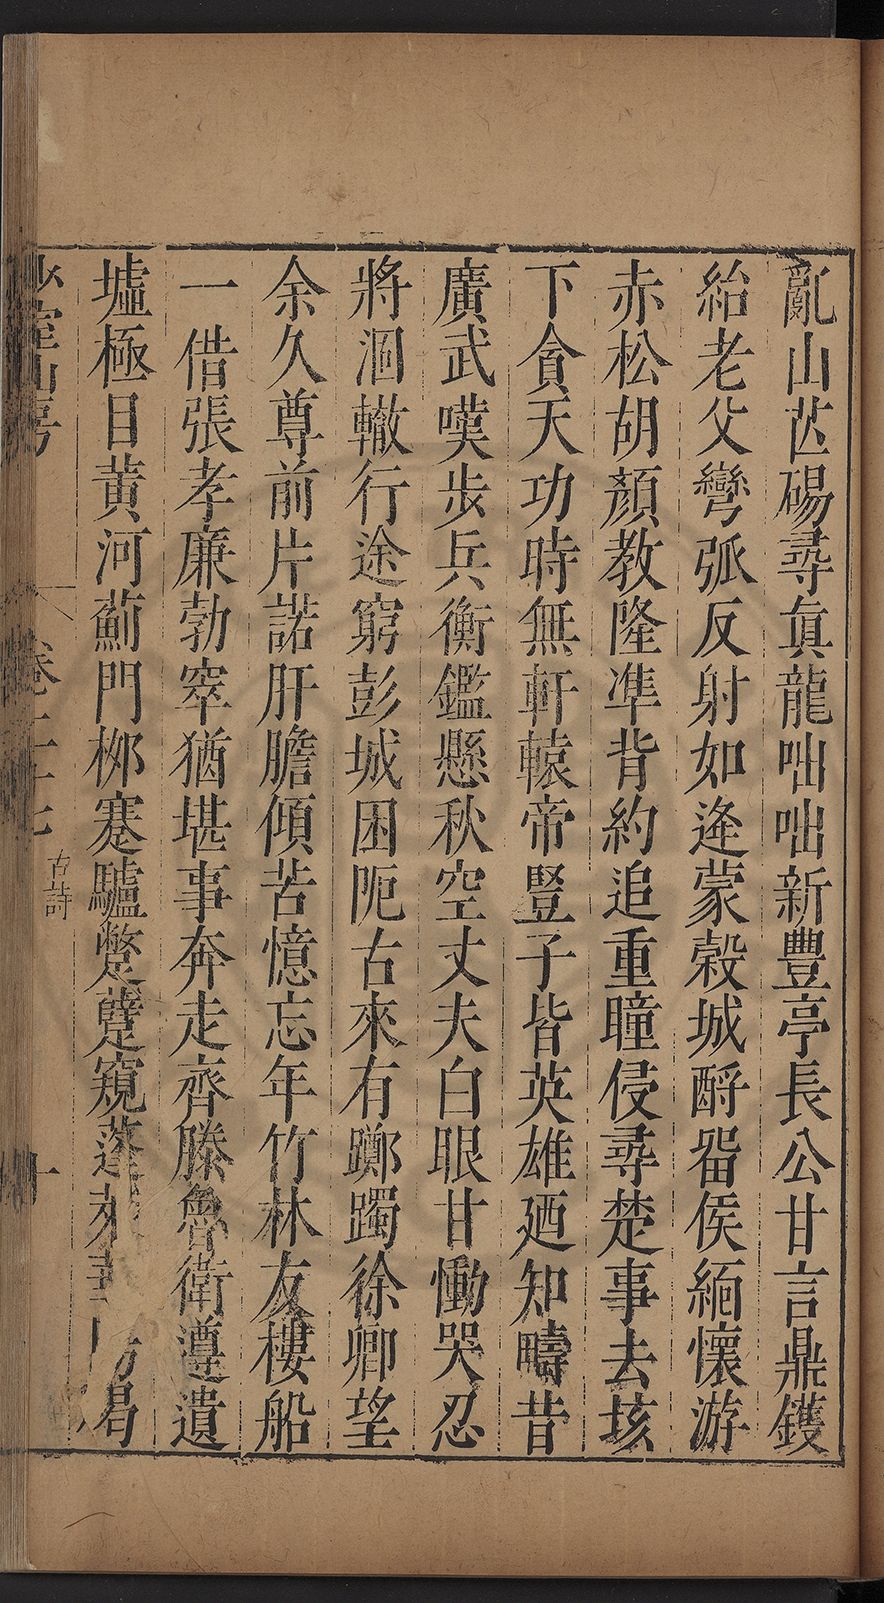 亂山芒碭尋眞龍咄咄新豐亭長公甘言鼎鑊
紿老父彎弧反射如逄蒙榖城酹畱侯緬懷游
赤松胡顏教隆準背約追重瞳侵尋楚事去垓
下貪天功時無軒轅帝豎子皆英雄廼知疇昔
廣武嘆步兵衡鑑懸秋空丈夫白眼甘慟哭忍
將涸轍行途窮彭城困阨古來有躑躅徐卿望
余久尊前片諾肝膽傾苦憶忘年竹林友樓船
一借張孝廉勃窣猶堪事奔走齊滕魯衛遵遺
墟極目黃河薊門桺蹇驢蹩躠窺蓬萊
少室山房
卷二十七
古詩
十